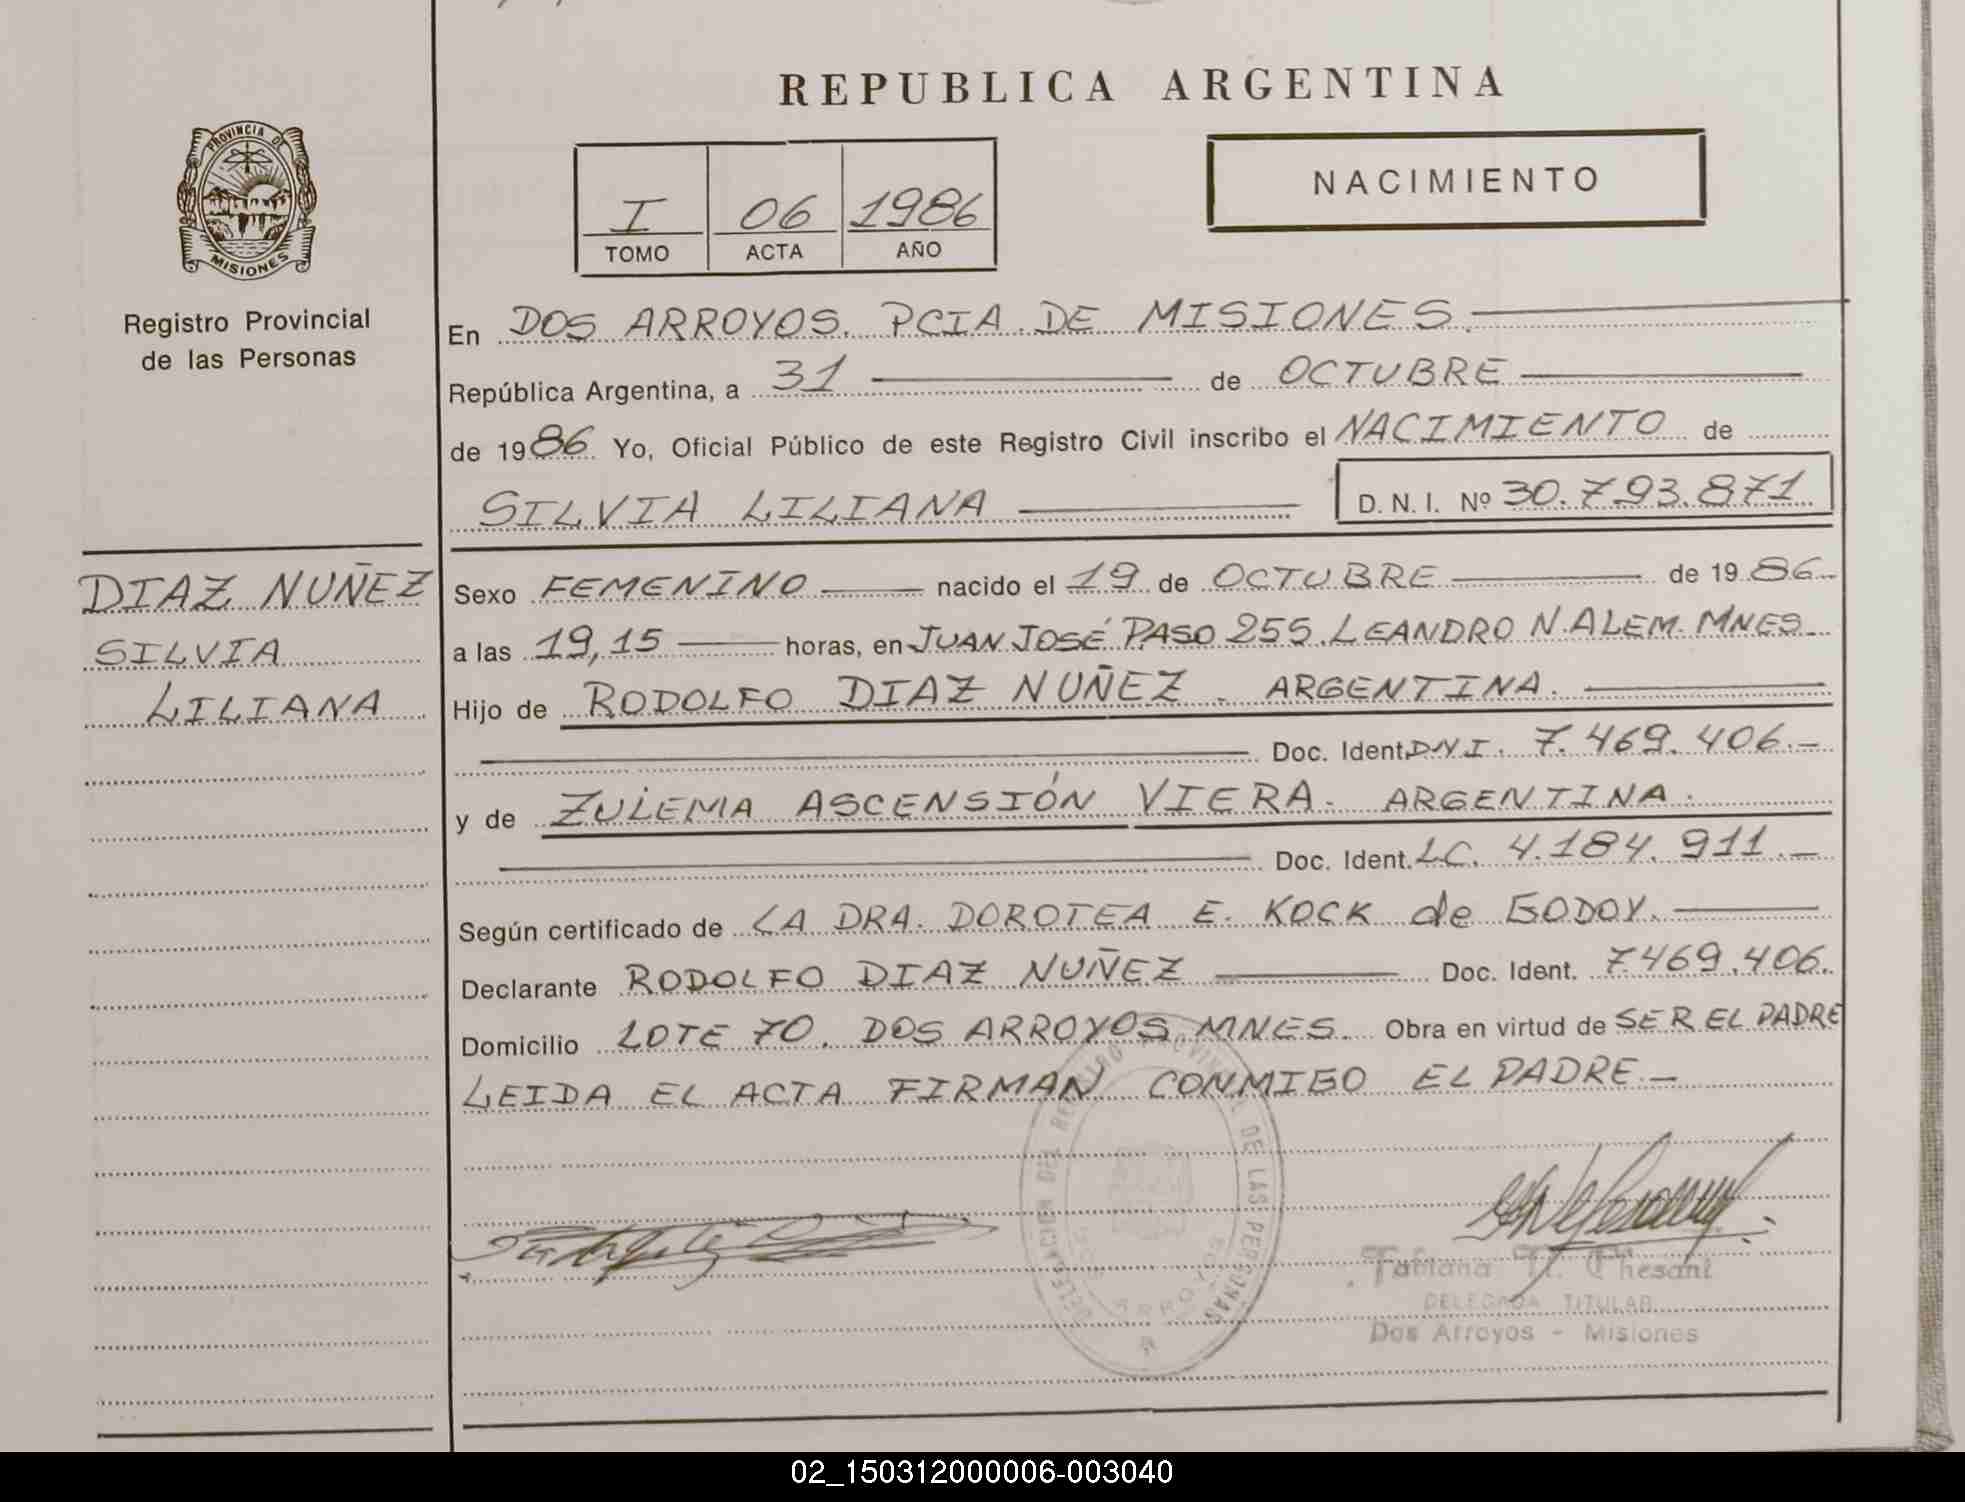 REPUBLICA ARGENTINA
PROVINCIA DE
MISIONES
Registro Provincial
de las Personas
I 06 1986
TOMO ACTA AÑO
NACIMIENTO
En DOS ARROYOS. PCIA. DE MISIONES.
República Argentina, a 31 de OCTUBRE
de 1986 Yo, Oficial Público de este Registro Civil inscribo el NACIMIENTO de
SILVIA LILIANA D. N. I. Nº 30.793.871
DIAZ NUÑEZ
SILVIA
LILIANA
Sexo FEMENINO nacido el 19 de OCTUBRE de 1986.
a las 19,15 horas, en JUAN JOSÉ PASO 255. LEANDRO N. ALEM. MNES.
Hijo de RODOLFO DIAZ NUÑEZ. ARGENTINA.
Doc. Ident. DNI. 7.469.406.-
y de ZULEMA ASCENSIÓN VIERA. ARGENTINA.
Doc. Ident. LC. 4.184.911.-
Según certificado de LA DRA. DOROTEA E. KOCK de GODOY.
Declarante RODOLFO DIAZ NUÑEZ Doc. Ident. 7469.406.
Domicilio LOTE 70. DOS ARROYOS MNES. Obra en virtud de SER EL PADRE
LEIDA EL ACTA FIRMAN CONMIGO EL PADRE.-
DELEGACION DEL REGISTRO PROVINCIAL DE LAS PERSONAS
DOS ARROYOS
Fabiana N. Chesani
DELEGADA TITULAR
Dos Arroyos - Misiones
02_150312000006-003040